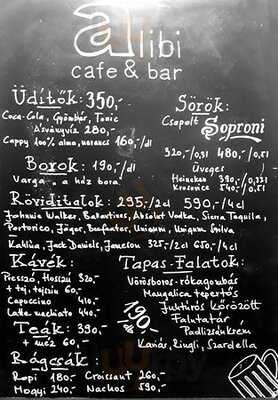 alibi
cafe & bar
Üdítők: 350,-
Coca-Cola, Gyömbér, Tonic
Ásványvíz 280,-
Cappy 100% alma, narancs 160,-/dl
Borok: 190,-/dl
Varga, a ház bora
Sörök:
Csapolt Soproni
320,-/0,3l 480,-/0,5l
Üveges
Heineken 590,-/0,33l
Krusovice 540,-/0,5l
Rövidítalok: 295,-/2cl 590,-/4cl
Johnnie Walker, Balantines, Absolut Vodka, Sierra Taquila,
Portorico, Jäger, Beefeater, Unicum, Unicum Szilva
Kahlúa, Jack Daniels, Jameson 325,-/2cl 650,-/4cl
Kávék:
Presszó, Hosszú 320,-
+ tej, tejszín 60,-
Capuccino 410,-
Latte machiato 440,-
Teák: 390,-
+ méz 60,-
Rágcsák:
Ropi 180,- Croissant 260,-
Mogyi 240,- Nachos 590,-
Tapas-Falatok:
Vörösboros-rókagombás
Mangalica tepertős
Juhtúrós körözött
190,-
Falutatár
Padlizsánkrém
Kaviár, Ringli, Szardella